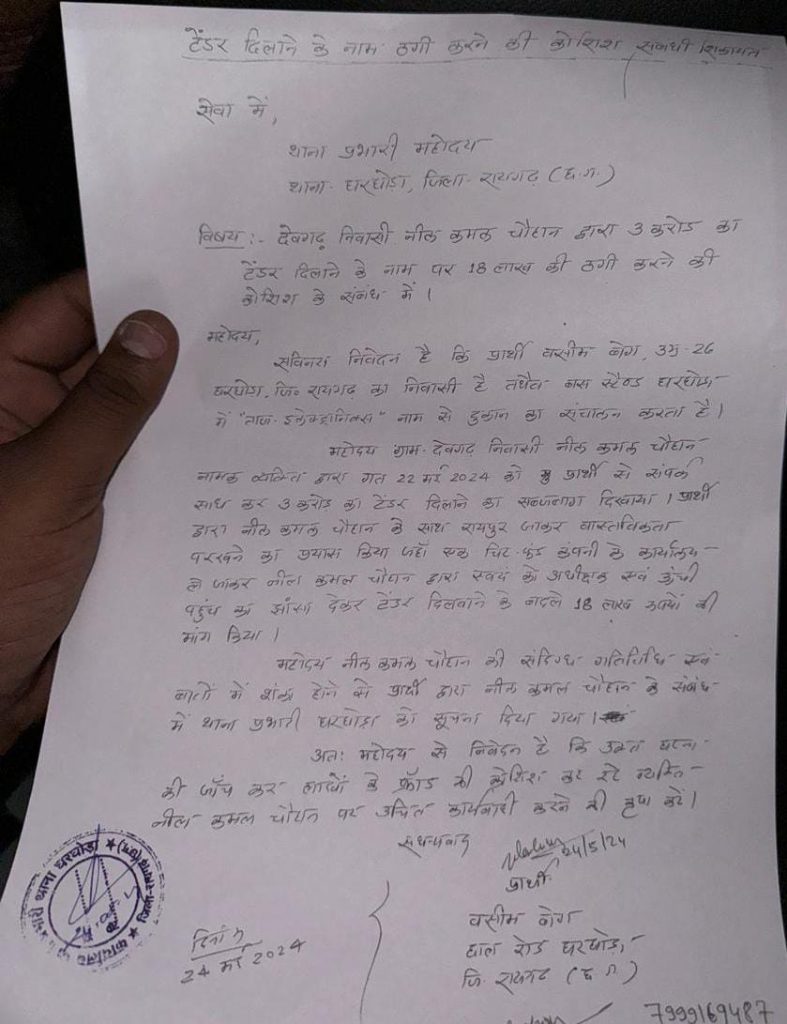 टेंडर दिलाने के नाम ठगी करने की कोशिश संबंधी शिकायत
सेवा में,
थाना प्रभारी महोदय
थाना घरघोड़ा, जिला रायगढ़ (छ.ग.)
विषय :- देवगढ़ निवासी नील कमल चौहान द्वारा 3 करोड का
टेंडर दिलाने के नाम पर 18 लाख की ठगी करने की
कोशिश के संबंध में ।
महोदय,
सविनय निवेदन है कि प्रार्थी वसीम बेग, उम्र-26
घरघोड़ा, जि० रायगढ़ का निवासी है तथैव बस स्टैण्ड घरघोड़ा
में "ताज इलेक्ट्रानिक्स" नाम से दुकान का संचालन करता है ।
महोदय ग्राम-देवगढ निवासी नील कमल चौहान
नामक व्यक्ति द्वारा गत 22 मई 2024 को प्रार्थी से संपर्क
साध कर 3 करोड का टेंडर दिलाने का सब्जबाग दिखाया । प्रार्थी
द्वारा नील कमल चौहान के साथ रायपुर जाकर वास्तविकता
परखने का प्रयास किया जहाँ एक चिट-फंड कंपनी के कार्यालय
ले जाकर नील कमल चौहान द्वारा स्वयं को अधीक्षक एवं ऊंची
पहुंच का झांसा देकर टेंडर दिलवाने के बदले 18 लाख रुपयों की
मांग किया ।
महोदय नील कमल चौहान की संदिग्ध गतिविधि एवं
बातों में शंका होने से प्रार्थी द्वारा नील कमल चौहान के संबंध
में थाना प्रभारी घरघोड़ा को सूचना दिया गया ।
अतः महोदय से निवेदन है कि उक्त घटना
की जाँच कर लाखों के फ्रॉड की कोशिश कर रहे व्यक्ति
नील कमल चौहान पर उचित कार्यवाही करने की कृपा करें ।
सधन्यवाद
24/5/24
प्रार्थी
वसीम बेग
रोड घरघोड़ा,
जि. रायगढ (छ.ग.)
7999169487
दिनांक
24 मई 2024
कार्यालय थाना प्रभारी थाना घरघोड़ा